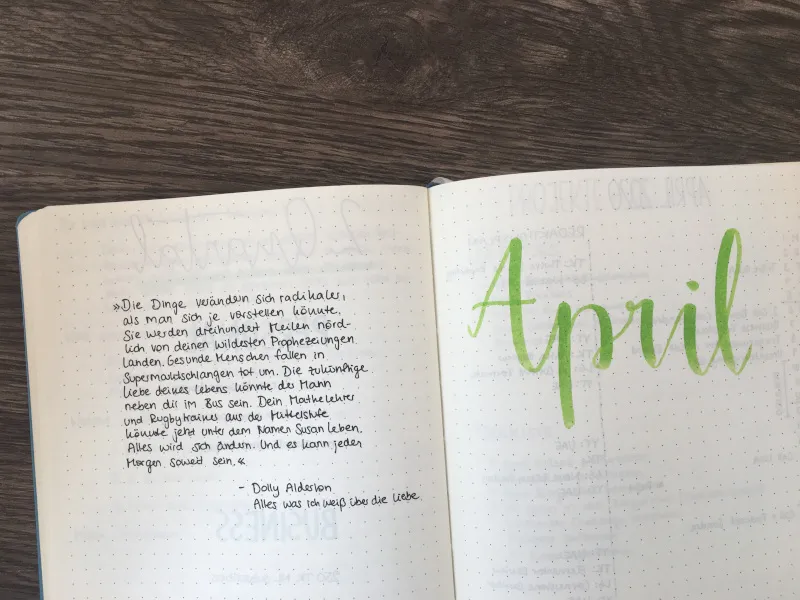 »Die Dinge verändern sich radikaler,
als man sich je vorstellen könnte.
Sie werden dreihundert Meilen nörd-
lich von deinen wildesten Prophezeiungen
landen. Gesunde Menschen fallen in
Supermarktschlangen tot um. Die zukünftige
Liebe deines Lebens könnte der Mann
neben dir im Bus sein. Dein Mathelehrer
und Rugbytrainer aus der Mittelstufe
könnte jetzt unter dem Namen Susan leben.
Alles wird sich ändern. Und es kann jeden
Morgen soweit sein.«
- Dolly Alderton
Alles was ich weiß über die Liebe.
April
2. Quartal
APRIL 2020
BUSINESS